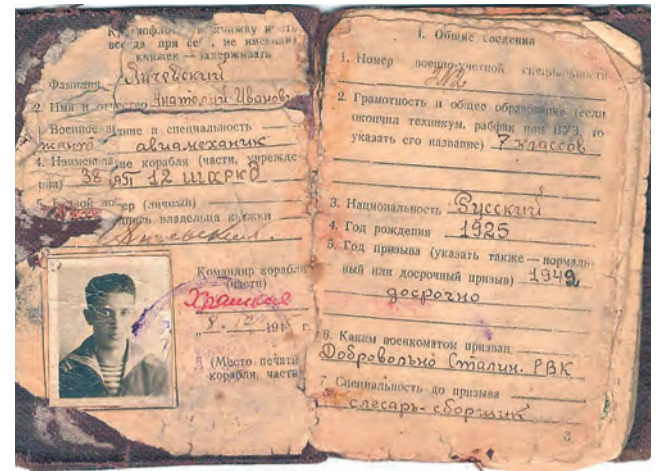 Краснофлотскую книжку иметь
всегда при себе, не имеющих
книжек — задерживать
Фамилия
2. Имя и отчество Анатолий Иванов
Военное звание и специальность
авиамеханик
4. Наименование корабля (части, учрежде
ния) 38 АП 12 ШАРКО
5. Боевой номер (личный)
подпись владельца книжки
Командир корабля
(части)
8. 12 194 г.
(Место печати
корабля, части
1. Общие сведения
1. Номер военно-учетной специальности
2. Грамотность и общее образование (если
окончил техникум, рабфак или ВУЗ, то
указать его название) 7 классов
3. Национальность Русский
4. Год рождения 1925
5. Год призыва (указать также — нормаль-
ный или досрочный призыв) 1942
досрочно
6. Каким военкоматом призван
Добровольно Сталин. РВК
7. Специальность до призыва
слесарь-сборщик
3